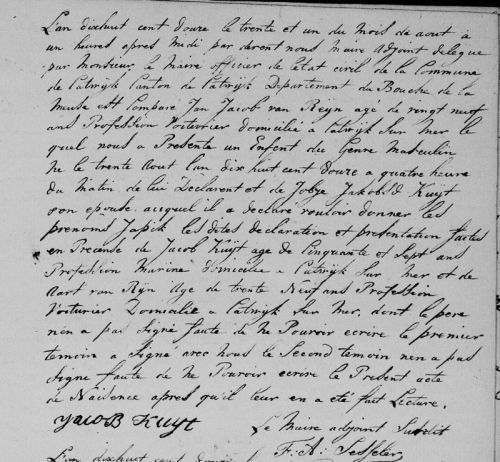 L'an dixhuit cent Douze le trente et un du mois de aout à
un heures apres Midi par devent nous Maire Adjoint delegue
par Monsieur le Maire officier de letat civil de la Commune
de Catwijk Canton de Catwijk Departement du Bouche de la
Meuse est Compare Jan Jacob van Reijn agé de vengt neuf
ans Profession Voiturier domicilié a Catwijk Sur Mer le
quel nous a Presente un Enfent du Genre Masculin
Ne le trente Aout l'an dix huit cent Douze a quatre heure
du Matin de lui Declarent et de Jobje Jakobsd Kuijt
son epouse auquel il a declaré vouloir donner les
prenoms Japik les dites declaration et presentation faites
en Presense de Jacob Kuijt age de Cinquante et Sept ans
Profession Marine domicilie a Catwijk Sur Mer et de
Aart van Rijn Age de trente Neuf ans Profession
Voiturier Domicilie a Catwijk Sur Mer. dont le pere
n'en a pas Signé faute de Ne Pouvoir ecrire le premier
temoin a Signé avec Nous le Second temoin nen a pas
Signe faute de Ne Pouvoir ecrire le Present acte
de Naisence apres qu'il leur en a eté fait Lecture.
Yacob Kuyt
Le Maire adjoint Susdit
F: A:
L'an dixhuit cent